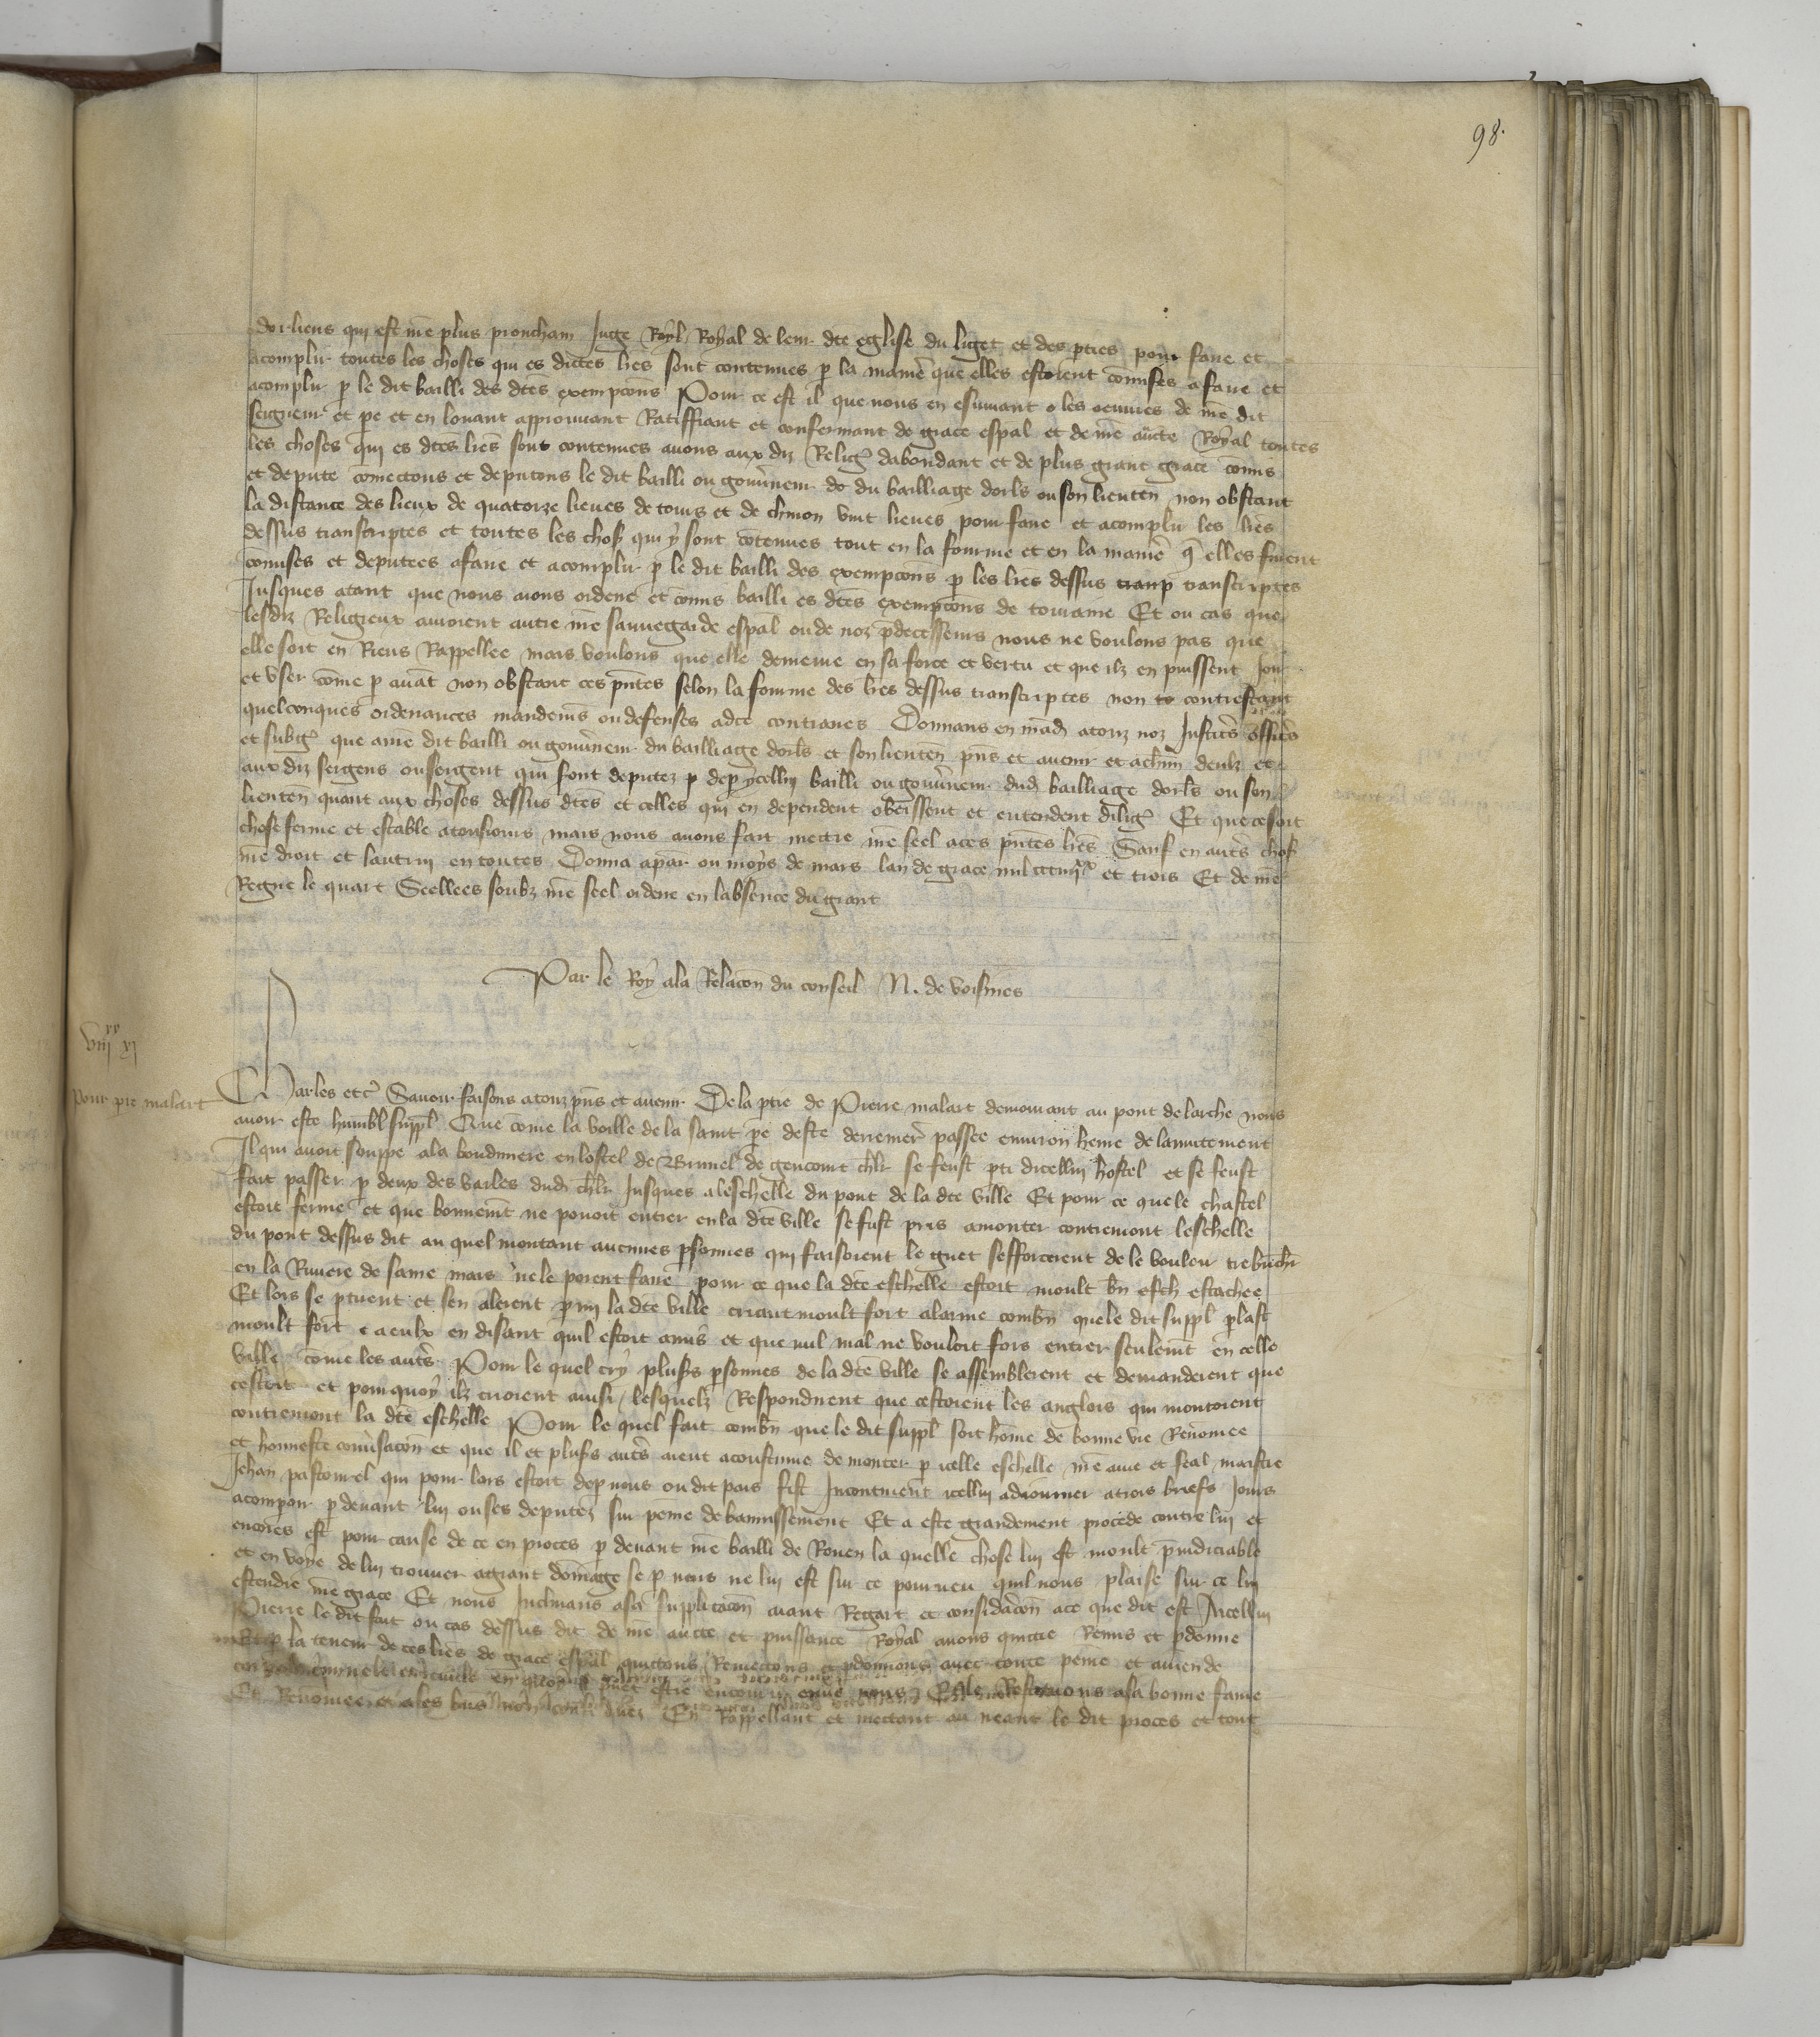 98.
dorliens qui est nre plus prouchain Juge Royl Royal de leur dte eglise du liget et des pties pour faire et
acomplir toutes les choses qui es dictes lres sont contenues p la manie que elles estoient comises a faire et
acomplir p le dit bailli des dtes exempcons Pour ce est il que nous en ensuivant les oeuvres de nre dit
seigneur et pe et en louant approuvant Ratiffiant et confermant de grace espal et de nre aucte Royal toutes
les choses qui es dtes lres sont contenues avons aux diz Relig dabondant et de plus grant grace comis
et depute comectons et deputons le dit bailli ou gouvneur do du bailliage dorls ou son lieuten non obstant
la distance des lieux de quatorze lieues de tours et de chinon vint lieues pour faire et acomplir les lres
dessus transcriptes et toutes les chos qui y sont contenues tout en la fourme et en la manie q elles furent
comises et deputees a faire et acomplir p le dit bailli des exempcons p les lres dessus tranp transcriptes
Jusques atant que nous aions ordene et comis bailli es dtes exempcons de touraine Et ou cas que
lesdiz Religieux auroient autre nre sauvegarde espal ou de noz pdecesseurs nous ne voulons pas que
elle soit en Riens Rappellee mais voulons que elle demeure en sa force et vertu et que ilz en puissent Joir
et user come p avat non obstant ces pntes selon la fourme des lres dessus transcriptes non to contrestant
quelconques ordenances mandemens ou defenses adce contraires Donnans en mad atouz noz Justicrs officrs
et subg que a nre dit bailli ou gouvneur du bailliage dorls et son lieuten pns et avenir et achun deulx et
aux diz sergens ou sergent qui sont deputez p dep ycellui bailli ou gouvneur dud bailliage dorls ou son
lieuten quant aux choses dessus dtes et celles qui en dependent obeissent et entendent dilig Et que ce soit
chose ferme et estable atousiours mais nous avons fait mettre nre seel aces pntes lres Sauf en autrs chos
nre droit et lautrui en toutes Donna apar ou moys de mars lan de grace mil ccc iiij xx et trois Et de nre
Regne le quart Seellees soubz nre seel ordene en labsence du grant
Par le Roy ala Relacon du conseil N. de voisines
viij xx xj
pour pre malart
Charles etc Savoir faisons atouz pns et avenir De la ptie de Pierre malart demourant au pont de larche nous
avoir este humbl suppl Que come la veille de la saint pe deste derremeret passee environ heure de lanuitement
Il qui avoit souppe ala boudiniere en lostel de Brunel de gencourt chlr se feust pti dicellui hostel et se feust
fait passer p deux des varles dud chlr Jusques aleschelle du pont de la dte ville Et pour ce que le chastel
estoit ferme et que bonnemt ne povoit entrer en la dte ville se fust pris amonter contremont leschelle
du pont dessus dit au quel montant aucunes psonnes qui faisoient le guet sefforcerent de le vouloir trebuchr
en la Riviere de saine mais ne le porent faire pour ce que la dte eschelle estoit moult bn esth estachee
Et lors se ptirent et sen alerent p mi la dte ville criant moult fort alarme combn que le dit suppl plast
moult fort a eulx en disant quil estoit amis et que nul mal ne vouloit fors entrer seulemt en celle
ville come les autrs Pour le quel cry plusrs psonnes de la dte ville se assemblerent et demanderent que
cestoit et pourquoy ilz crioient ainsi lesquelx Respondirent que cestoient les anglois qui montoient
contremont la dte eschelle Pour le quel fait combn que le dit suppl soit home de bonne vie Renomee
et honneste convsacon et que il et plusrs autrs aient acoustume de monter p icelle eschelle nre ame et feal maistre
Jehan pastourel qui pour lors estoit dep nous ou dit pais fist Incontinent icellui adjourner atrois briefs Jours
acomparoir p devant lui ou ses deputez sur peine de bannissement Et a este grandement procede contre lui et
encores est pour cause de ce en proces p devant nre bailli de Rouen la quelle chose lui est moult piudiciable
et en voye de lui trouver agrant domage se p nous ne lui est sur ce pourveu quil nous plaise sur ce lui
estendre nre grace Et nous Inclinans asa supplicacon aiant Regart et considacon ace que dit est Aicellui
Pierre le dit fait ou cas dessus dit de nre aucte et puissance Royal avons quitte Remis et pdonne
Et p la teneur de ces lres de grace espal quictons Remectons et pdonnons avec toute peine et amende
corporele criminele et civile en quoy il estre encouru envs nous Et le Restituons asa bonne fame
Et Renomee et ases bns non confisquez En Rappellant et mectant au neant le dit proces et tout